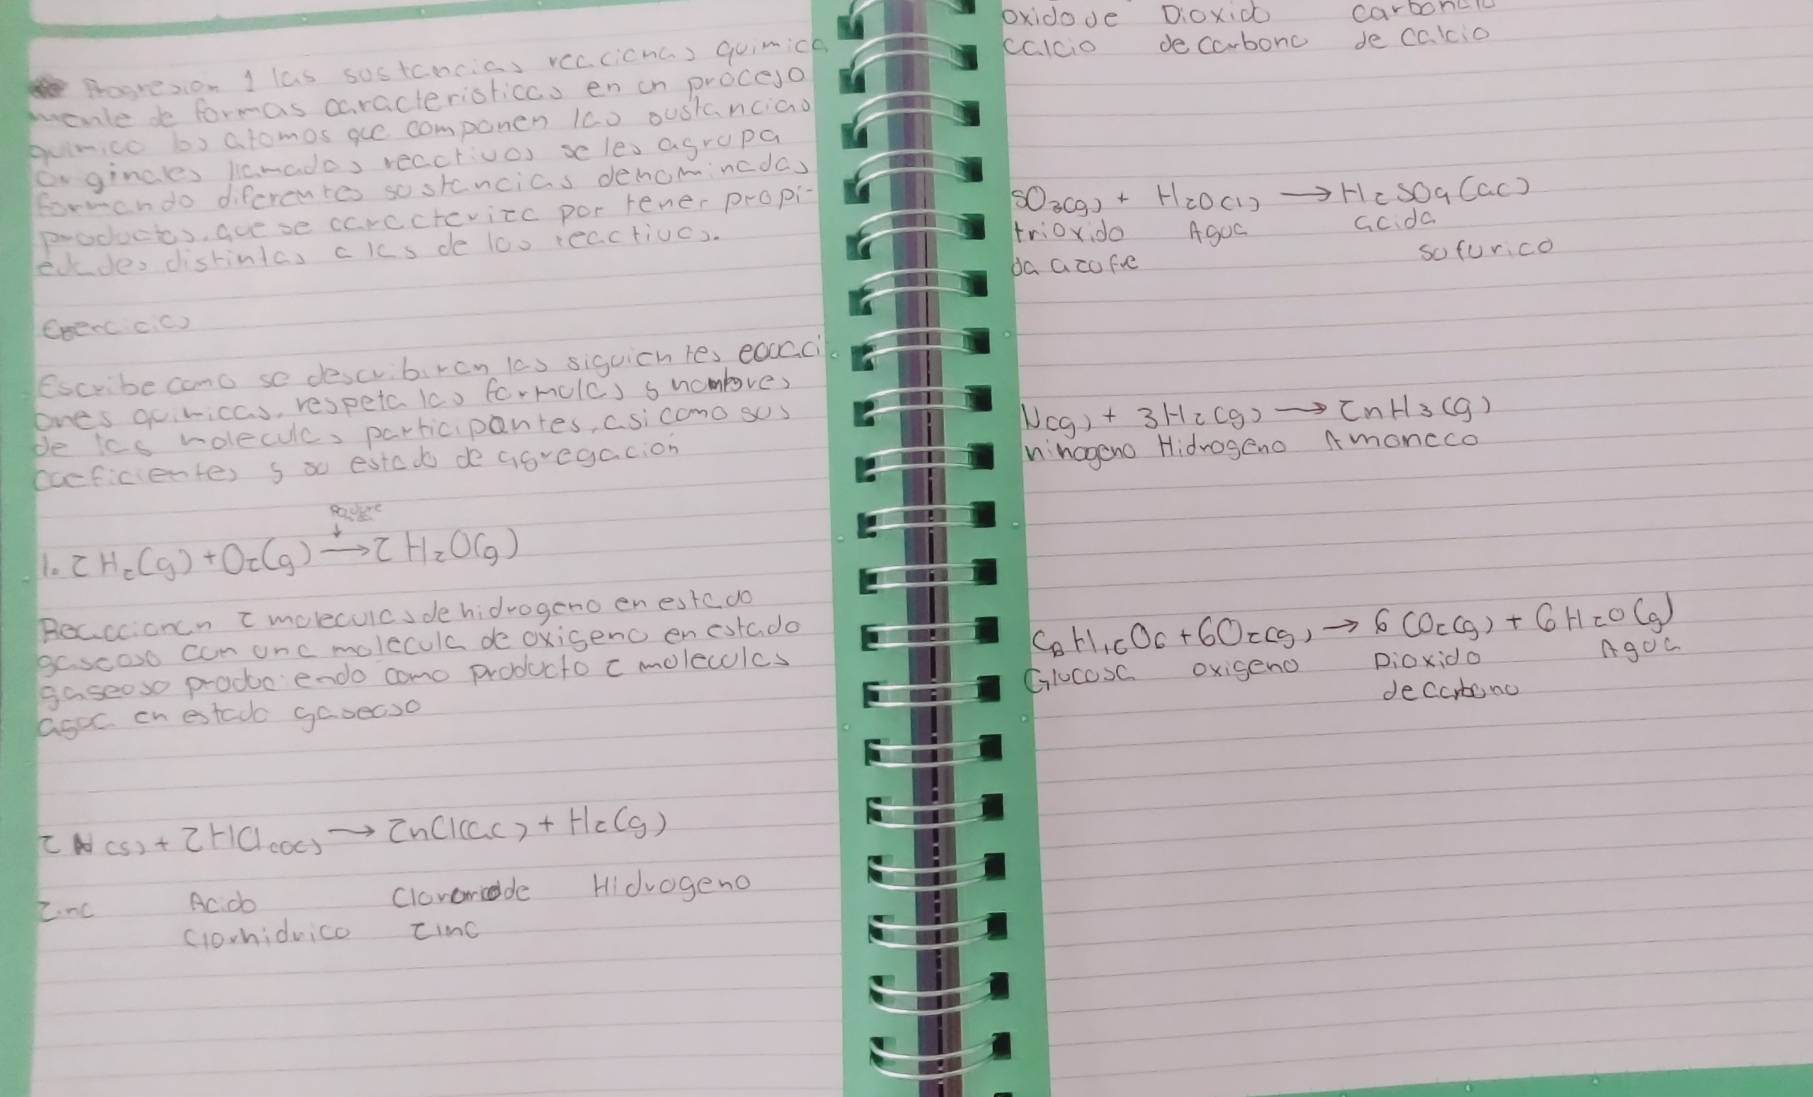 Progresion 1 las sustancias reacionas quimica
mente de formas caracteristicas en un proceso
quimico los atomos que componen las sustancias
originales llamados reactivos se les agrupa
formando diferentes sustancias denominadas
productos. que se caracteriza por tener propi-
edades distintas a las de los reactivos.
Ejercicios
Escribe como se describiran las siguientes ecuaci.
ones quimicas. respeta las formulas y nombres
de las moleculas participantes, asi como sus
coeficientes y su estado de agregacion
1. 2 H2(g) + O2(g) → 2 H2O(g)
Reaccionan 2 moleculas de hidrogeno en estado
gaseoso con una molecula de oxigeno en estado
gaseoso produciendo como producto 2 moleculas
agua en estado gaseoso
Z N (s) + 2 HCl (ac) → ZnCl(ac) + H2(g)
Zinc Acido Clorurode Hidrogeno
Clorhidrico zinc
oxido de Dioxido carbonato
calcio de carbono de calcio
SO3(g) + H2O(l) → H2SO4(ac)
trioxido Agua acida
da azofre sofurico
N(g) + 3H2(g) → ZnH3(g)
ninogeno Hidrogeno Amoneco
C6H12O6 + 6O2(g) → 6 CO2(g) + 6 H2O(g)
Glucosa oxigeno Dioxido Agua
de carbono